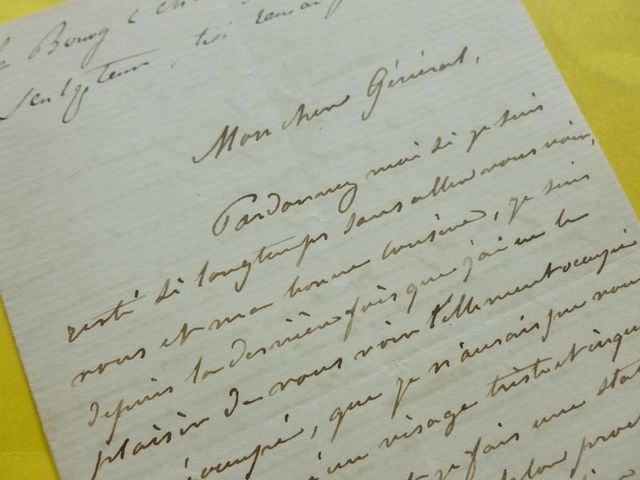 Bourg
sculpteur, très
Mon cher Général,
Pardonnez moi si je suis
resté si longtemps sans aller vous voir,
vous et ma bonne cousine, je suis
depuis la dernière fois que j'ai eu le
plaisir de vous voir tellement occupé
que je n'aurais pu vous
un visage triste et inqui
je fais une stat